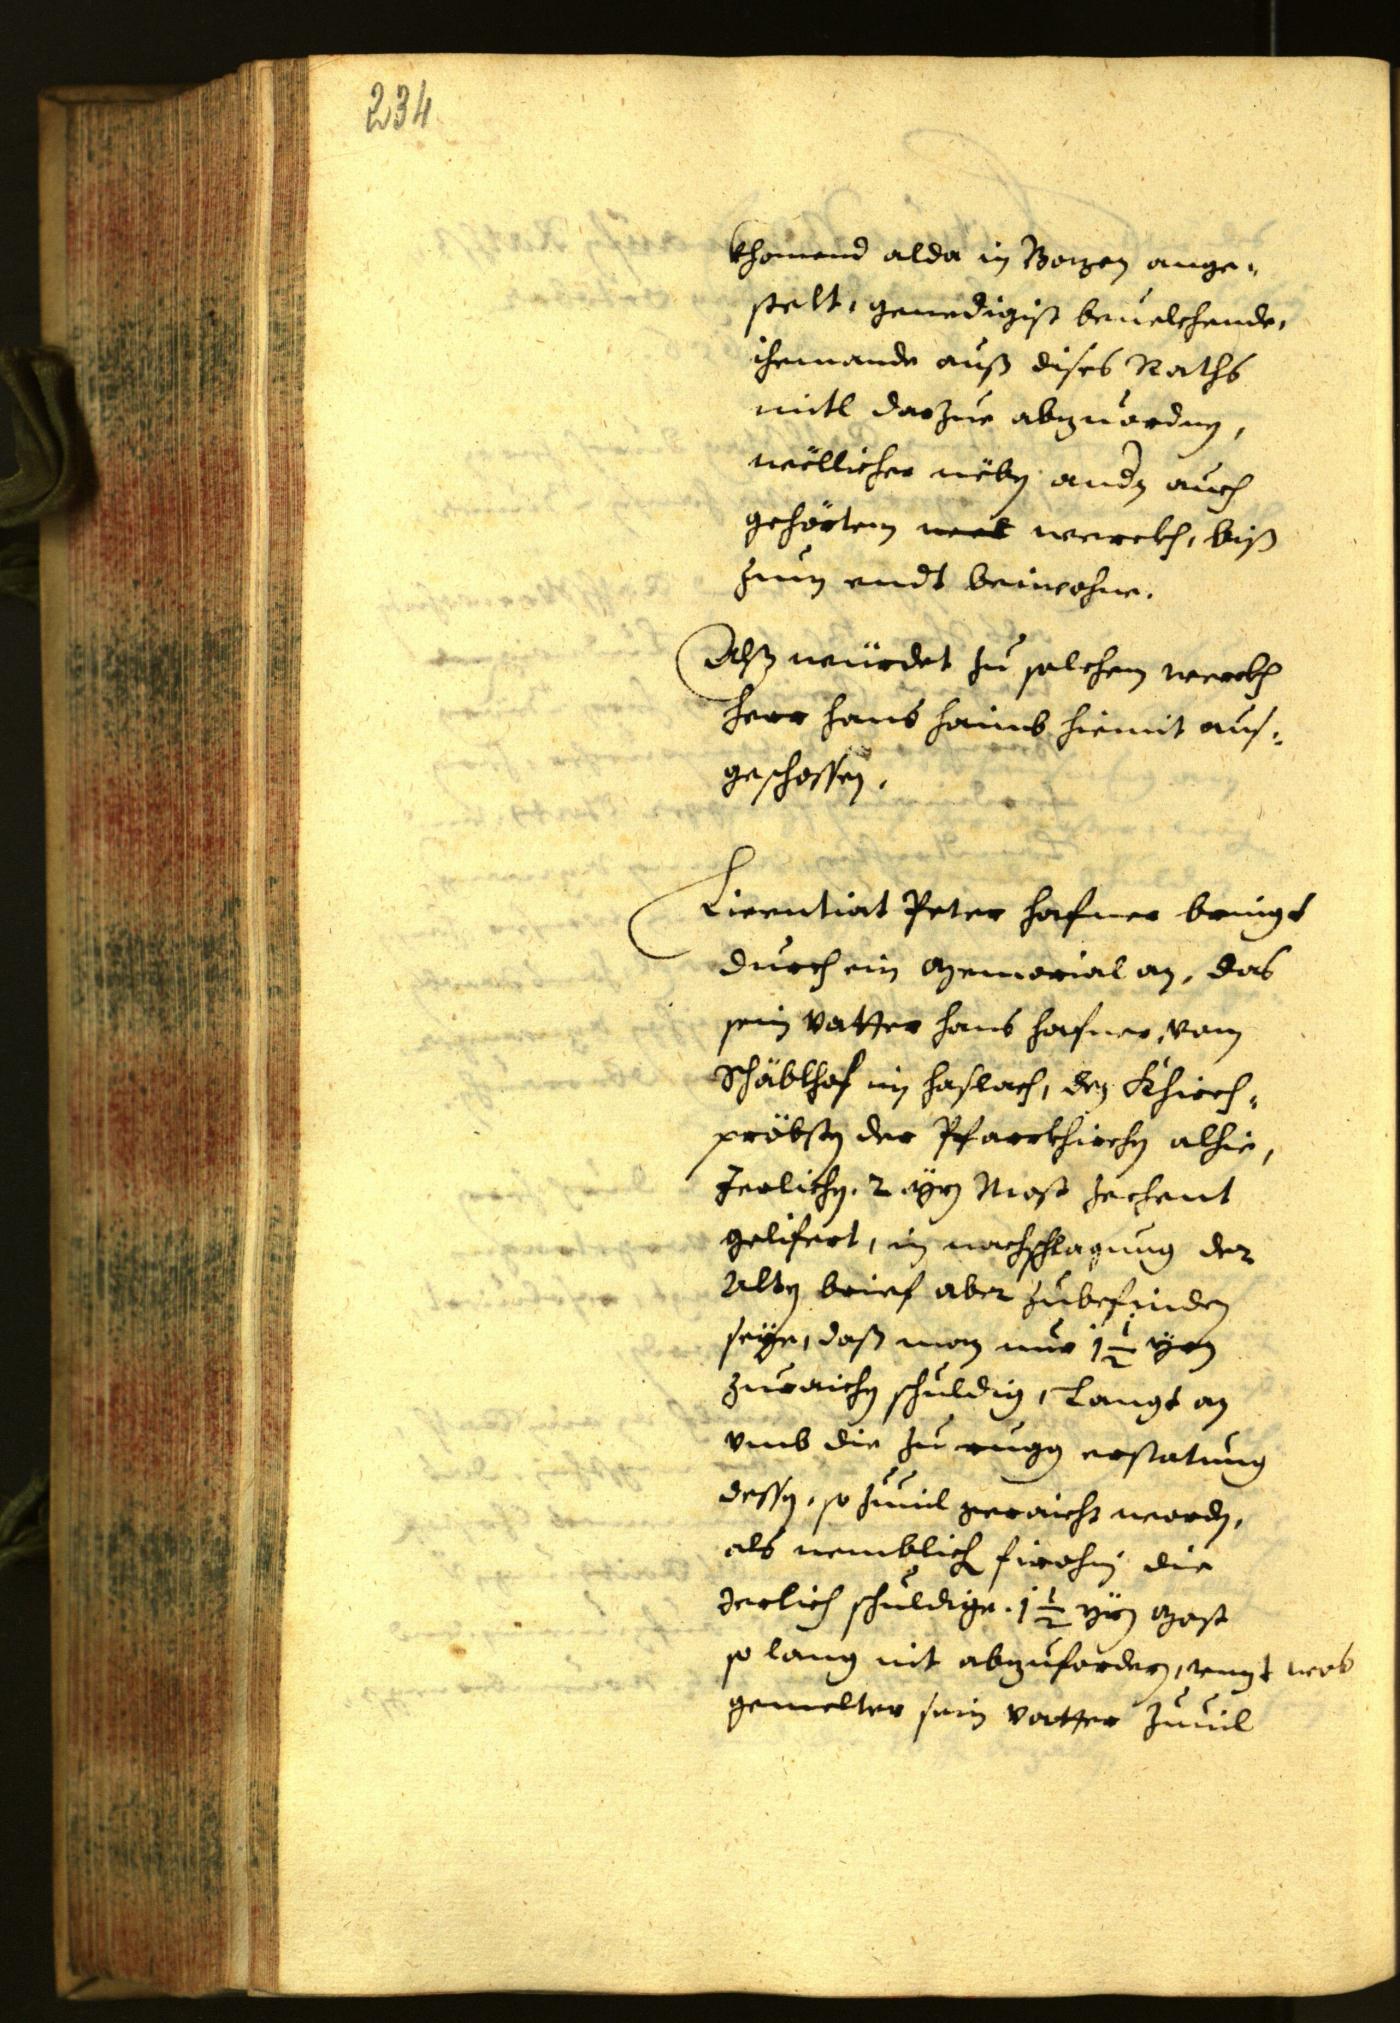 234
khomend alda in Bozen ange-
stelt, genedigist beuelchende,
ihemande auß dises Raths
mitl darzue abzuordnen,
wellicher neben andern auch
gehörtem werckh, biß
zum endt beiwohne.
Alß würdet zu solchem werckh
herr Hans Haimb hiemit aus-
geschossen.
Licentiat Peter Hafner bringt
durch ein Memorial an, das
sein Vatter Hans Hafner, vom
Schäblhof im Haslach, den Khirch-
pröbsten der Pfarrkhirchen alhie,
Jerlichen. 2 Yrn Most zechent
gelifert, in nachschlagung der
Alten brief aber zubefinden
seye, daß man nur 1 1/2 Yrn
zuraichen schuldig, Langt an
vmb die zu rugg erstatung
dessen, so zuuil geraicht worden,
als nemblich firohin die
Jerlich schuldige. 1 1/2 Yrn Most
so lang nit abzufordern, vnzt was
gemelter sein Vatter zuuil